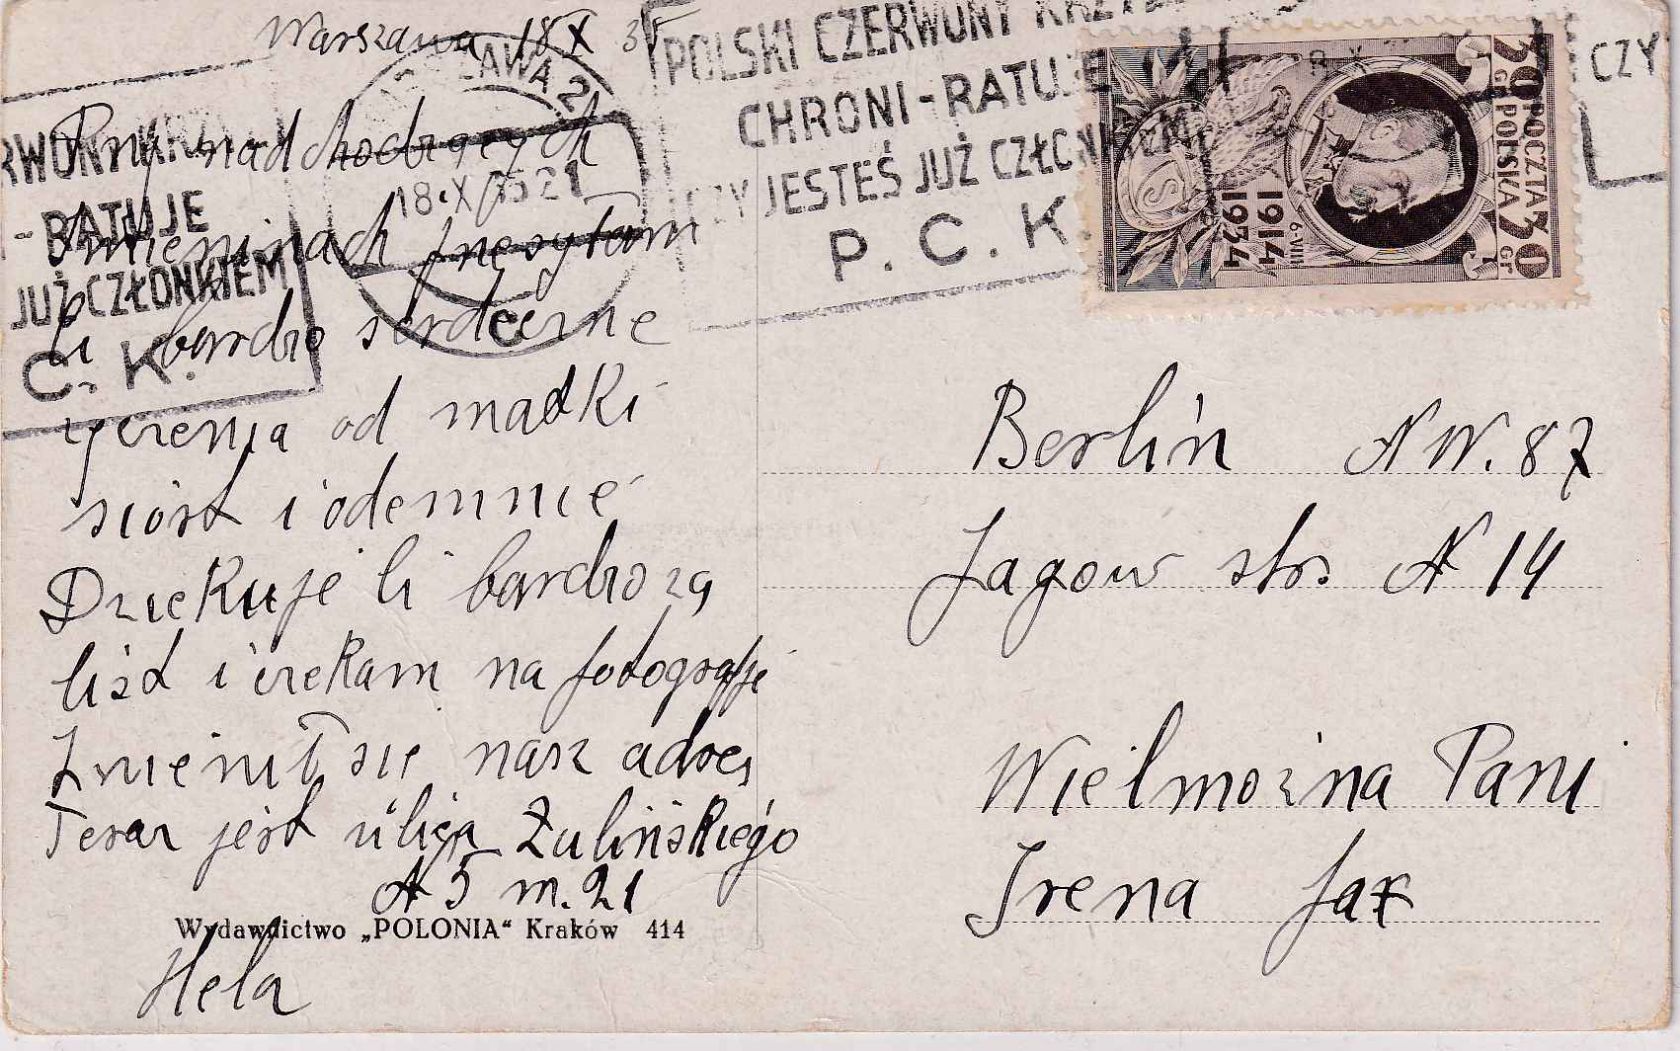 Warszawa 18 X 35
POLSKI CZERWONY KRZYŻ
CHRONI - RATUJE
CZY JESTEŚ JUŻ CZŁONKIEM
P. C. K.
CZY
RWONY KRZ
- RATUJE
JUŻ CZŁONKIEM
C. K.
WARSZAWA 2
18.X 35 21
C
30 POCZTA 30
GR POLSKA GR
1914
6·VIII
1934
Przy nadchodzących
Imieninach przesyłam
Ci bardzo serdeczne
życzenia od matki
sióst i odemnie
Dziekuje Ci bardzo za
list i czekam na fotografje
Zmienił sie nasz adres
Teraz jest ulica Żulińskiego
N 5 m. 21
Wydawnictwo „POLONIA“ Kraków 414
Hela
Berlin NW. 87
Jagow str N 14
Wielmożna Pani
Irena Jax